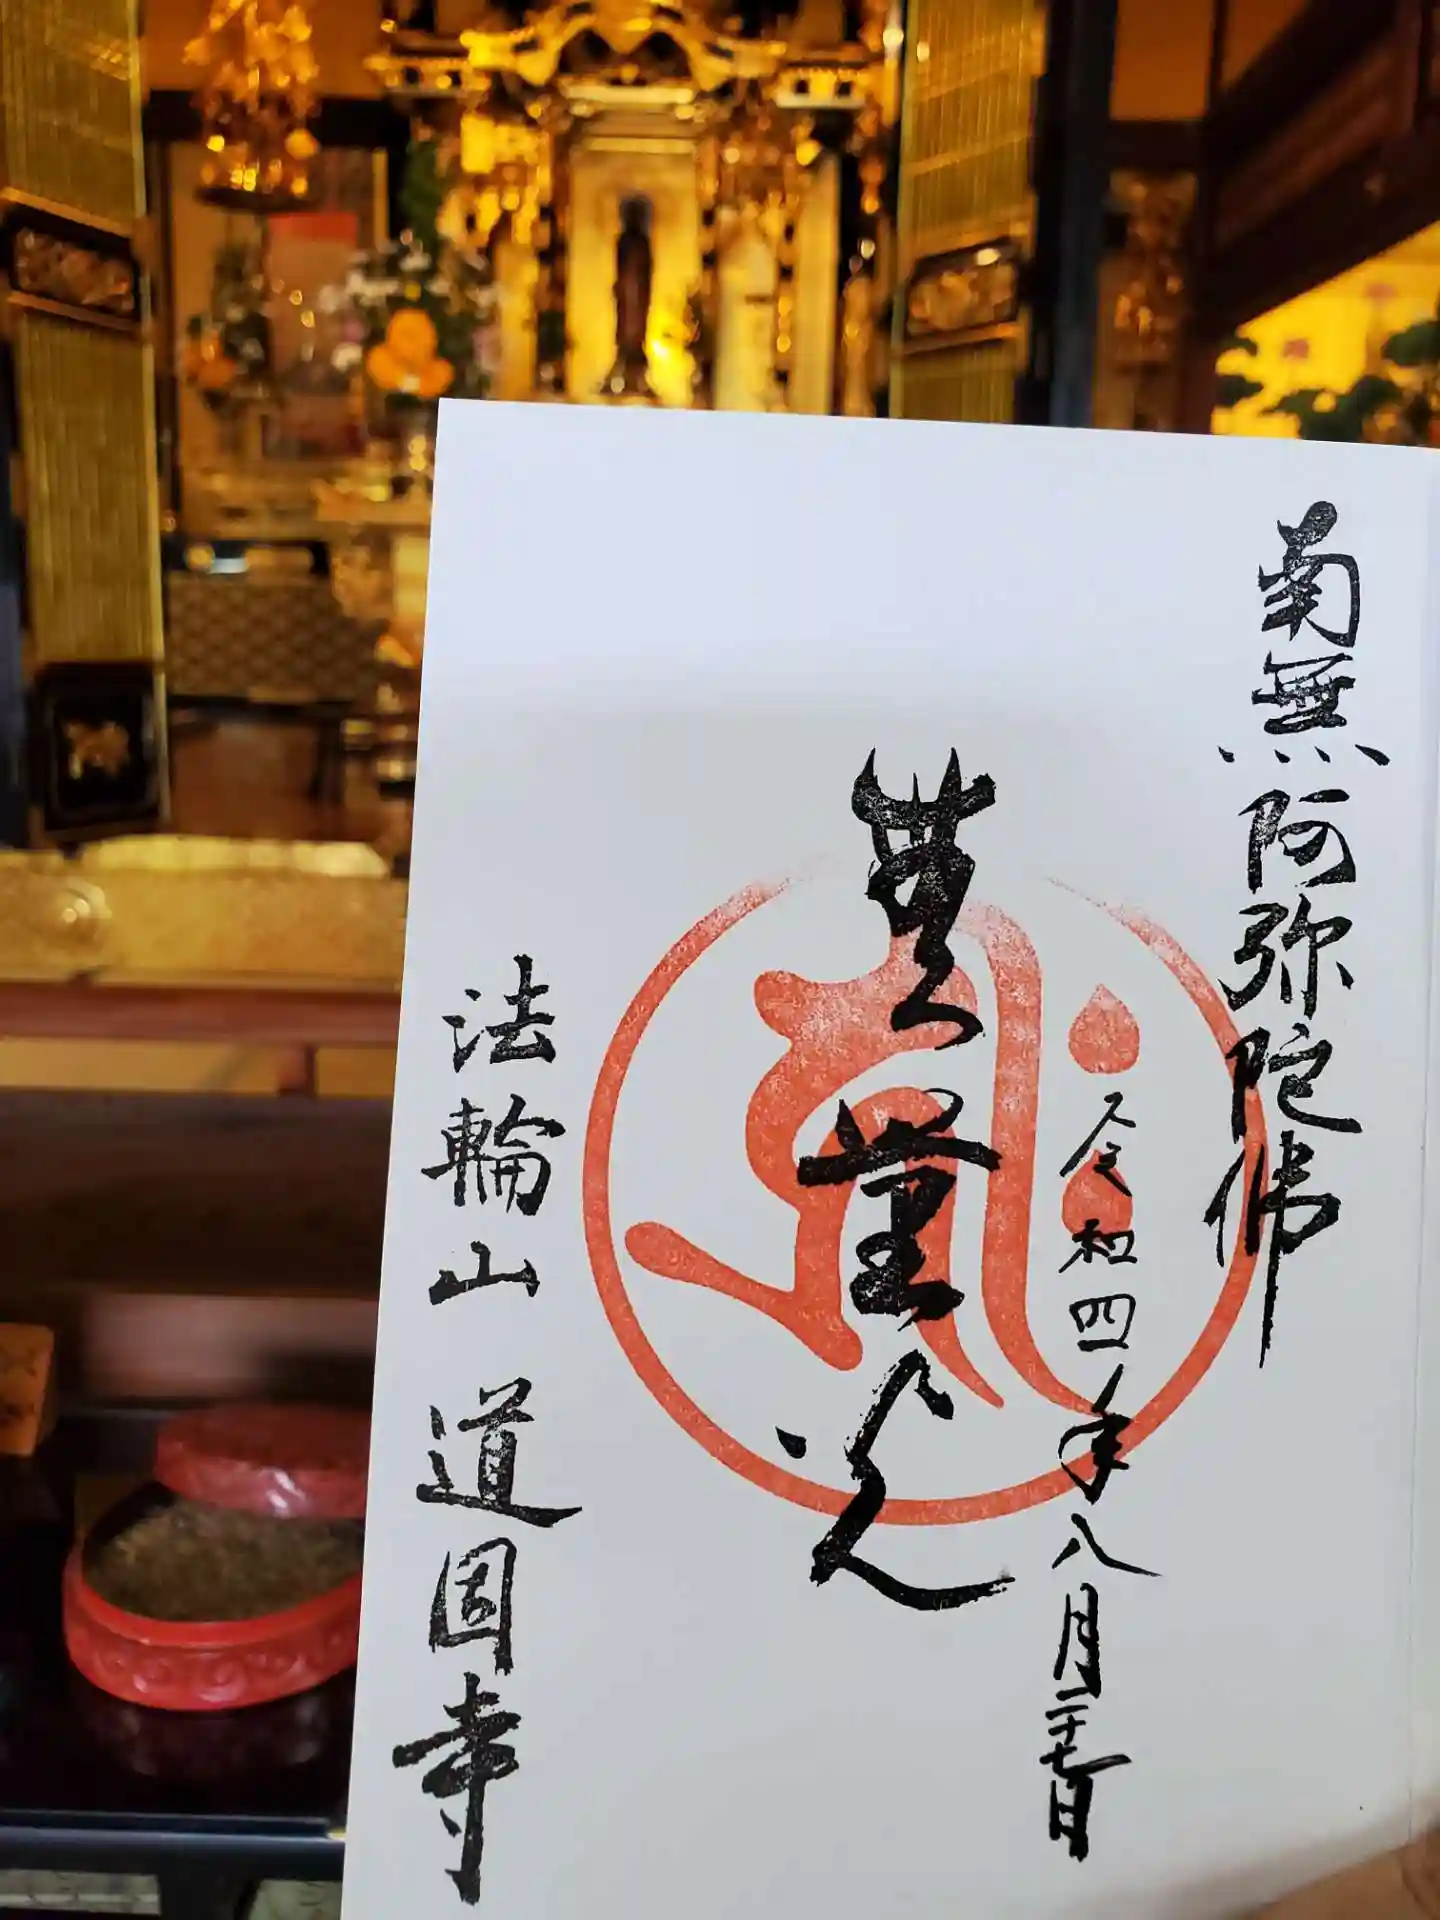 南無阿弥陀佛
令和四年八月二十七日
無量光
法輪山 道圓寺